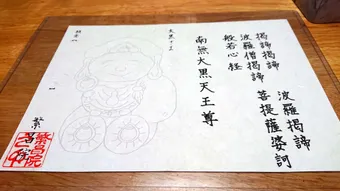 揭諦揭諦　波羅揭諦
波羅僧揭諦　菩提薩婆訶
般若心経
南無大黒天王尊